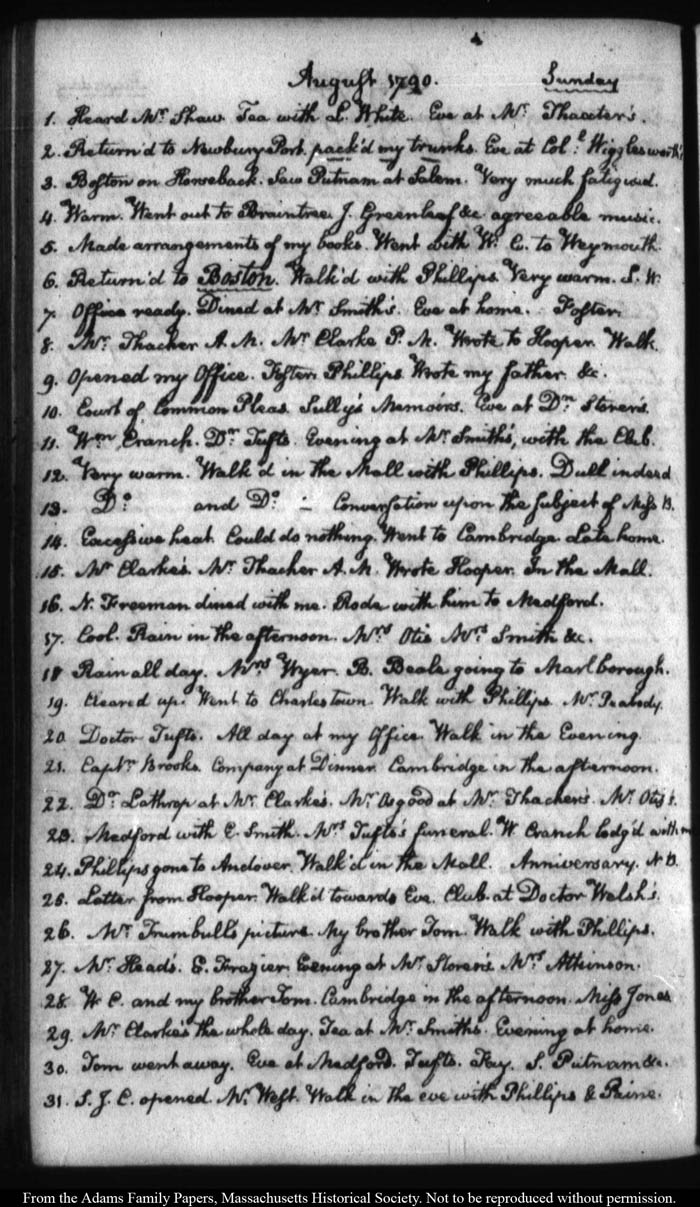 August 1790. Sunday
1. Heard Mr. Shaw. Tea with L. White. Eve at Mr. Thaxter's.
2. Return'd to Newbury-Port. pack'd my trunks. Eve at Col.l Wigglesworth's
3. Boston on Horseback. Saw Putnam at Salem. Very much fatigued.
4. Warm. Went out to Braintree. J. Greenleaf &c. agreeable music.
5. Made arrangements of my books. Went with W. C. to Weymouth.
6. Return'd to Boston. Walk'd with Phillips. Very warm. S. W.
7. Office ready. Dined at Mr. Smith's. Eve at home. Foster.
8. Mr. Thacher A. M. Mr. Clarke P. M. Wrote to Hooper. Walk.
9. Opened my Office. Foster. Phillips. Wrote my father &c.
10. Court of Common Pleas. Sully's Memoirs. Eve at Dr. Storer's.
11. Wm. Cranch. Dr. Tufts. Evening at Mr. Smith's, with the Club.
12. Very warm. Walk'd in the Mall with Phillips. Dull indeed
13. Do. and Do. – Conversation upon the subject of Miss B.
14. Excessive heat. Could do nothing. Went to Cambridge. Late home.
15. Mr. Clarke's. Mr. Thacher A. M. Wrote Hooper. In the Mall.
16. N. Freeman dined with me. Rode with him to Medford.
17. Cool. Rain in the afternoon. Mrs. Otis Mrs. Smith &c.
18 Rain all day. Mrs. Wyer. B. Beale going to Marlborough.
19. Cleared up. Went to Charlestown. Walk with Phillips. Mr. Peabody.
20. Doctor Tufts. All day at my Office. Walk in the Evening.
21. Captn. Brooks. Company at Dinner. Cambridge in the afternoon.
22. Dr. Lathrop at Mr. Clarke's. Mr. Osgood at Mr. Thacher's. Mr. Otis's.
23. Medford with E. Smith. Mrs. Tufts's funeral. W. Cranch lodg'd with me
24. Phillips gone to Andover. Walk'd in the Mall. Anniversary. N B.
25. Letter from Hooper. Walk'd towards Eve. Club at Doctor Welsh's.
26. Mr. Trumbull's picture. My brother Tom. Walk with Phillips.
27. Mr. Head's. E. Frazier. Evening at Mr. Storer's. Mrs. Atkinson.
28. W. C. and my brother Tom. Cambridge in the afternoon. Miss Jones
29. Mr. Clarke's the whole day. Tea at Mr. Smith's. Evening at home.
30. Tom went away. Eve at Medford. Tufts. Fay. S. Putnam &c.
31. S. J. C. opened. Mr. West. Walk in the eve with Phillips & Paine.
From the Adams Family Papers, Massachusetts Historical Society. Not to be reproduced without permission.